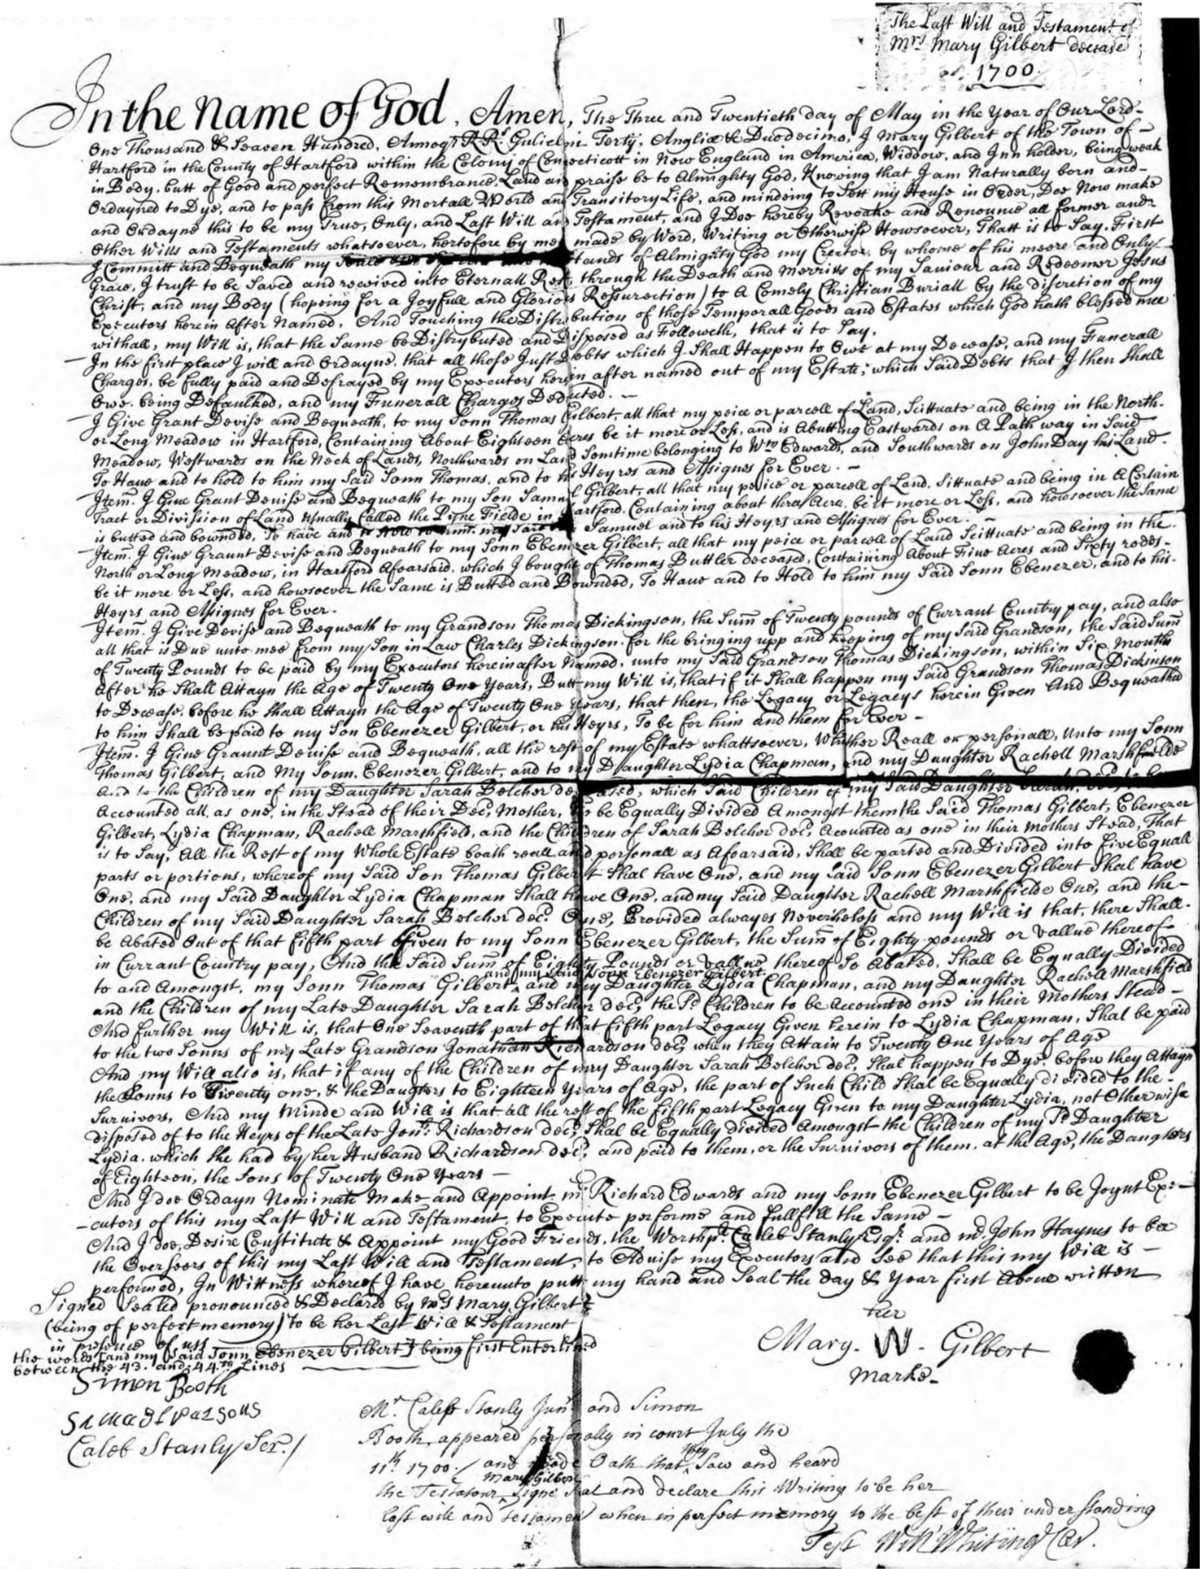 The Last Will and Testament of
Mrs Mary Gilbert decease
1700.
In the Name of God, Amen, The Three and Twentieth day of May in the Year of Our Lord
One Thousand & Seaven Hundred, Annoq R Rs Gulielmi Tertij, Angliæ & Duodecimo, I Mary Gilbert of the Town of
Hartford in the County of Hartford within the Colony of Connecticott in New England in America, Widdow, and Innholder, being weak
in Body, butt of Good and perfect Remembrance, Laud and praise be to Almighty God, Knowing that I am Naturally born and
Ordayned to Dye, and to pass from this Mortall World and Transitory Life, and minding to Sett my House in Order, Doe Now make
and Ordayne this to be my True, Only, and Last Will and Testament, and I Doe hereby Revoake and Renounce all former and
Other Wills and Testaments whatsoever, hertofore by mee made by Word, Writing or Otherwise Howsoever, Thatt is to Say, First
I Committ and Bequeath my hands of Almighty God my Creator, by whome of his meere and Only
Grace, I trust to be Saved and received into Eternall Rest, through the Death and Merritts of my Saviour and Redeemer Jesus
Christ, and my Body (hopeing for a Joyfull and Glorious Ressurection) to a Comely Christian Buriall by the discretion of my
Executors herein After Named, And Touching the Distribution of those Temporall Goods and Estates which God hath blessed mee
withall, my Will is, that the Same be Distrybuted and Disposed as Followeth, that is to Say,
In the first place I will and Ordayne, that all those Just Debts which I Shall Happen to Owe at my Decease, and my Funerall
Charges, be fully paid and Defrayed by my Executors herein after named out of my Estate; which Said Debts that I then Shall
Owe, being Defaulked, and my Funerall Charges Deducted. -
I Give Grant Devise and Bequeath, to my Sonn Thomas Gilbert, all that my peice or parcell of Land, Scittuate and being in the North-
or Long Meadow in Hartford, Containing About Eighteen Acres be it more or Less, and is Abutting Eastwards on A Path way in Said
Meadow, Westwards on the Neck of Lands, Northwards on Land Somtime belonging to Wm Edwards, and Southwards on John Day his Land.
To Have and to hold to him my Said Sonn Thomas, and to his Heyres and Assignes for Ever. -
Item. I Give Grant Devise and Bequeath to my Son Samuel Gilbert, all that my peice or parcell of Land, Sittuate and being in A Certain
Tract or Division of Land Usually Called the Pine Fielde in Hartford, Containing about three Acre, be it more or Less, and howsoever the Same
is butted and bounded, To have and to Hold to him my Said Samuel and to his Heyrs and Assignes for Ever. -
Item. I Give Graunt Devise and Bequeath to my Sonn Ebenezer Gilbert, all that my peice or parcell of Land Scittuate and being in the
North or Long Meadow, in Hartford Afoarsaid, which I bought of Thomas Buttler deceased, Containing About Five Acres and Sixty rodes-
be it more or Less, and howsoever the Same is Butted and Bounded, To Have and to Hold to him my Said Sonn Ebenezer, and to his-
Heyrs and Assignes for Ever.
Item. I Give Devise and Bequeath to my Grandson Thomas Dickingson, the Sum of Twenty pounds of Currant Country pay, and also
all that is Due unto mee from my Son in Law Charles Dickingson for the bringing upp and keeping of my Said Grandson, the Said Sum
of Twenty Pounds to be paid by my Executors hereinafter Named, unto my Said Grandson Thomas Dickingson, within Six Months
After he Shall Attayn the Age of Twenty One Years, Butt my Will is, that if it Shall happen my Said Grandson Thomas Dickinson
to Decease, before he Shall Attayn the Age of Twenty One Years, that then, the Legacy or Legacys herein Given And Bequeathed
to him Shall be paid to my Son Ebenezer Gilbert, or his Heyrs, To be for him and them for Ever -
Item. I Give Graunt Devise and Bequeath, all the rest of my Estate whattsoever, Whither Reall or personall, Unto my Sonn
Thomas Gilbert, and My Sonn Ebenezer Gilbert, and to my Daughter Lydia Chapman, and my Daughter Rachell Marshfielde
And to the Children of my Daughter Sarah Belcher deceased, which Said Children of my Said Daughter Sarah
Accounted all, as one, in the Stead of their Dec: Mother, to be Equally Divided Amongst them the Said Thomas Gilbert, Ebenezer
Gilbert, Lydia Chapman, Rachell Marshfield, and the Children of Sarah Belcher dec: Acounted as one in their Mothers Stead, That
is to Say, All the Rest of my Whole Estate boath reall and personall as Afoarsaid, Shall be parted and Divided into five Equall
parts or portions, whereof my Said Son Thomas Gilbert Shal have One, and my Said Sonn Ebenezer Gilbert Shal have
One, and my Said Daughter Lydia Chapman Shall have One, and my Said Daughter Rachell Marshfielde One, and the-
Children of my Said Daughter Sarah Belcher dec: One, Provided alwayes Neverheless and my Will is that, there Shall-
be Abated Out of that fifth part Given to my Sonn Ebenezer Gilbert, the Sum of Eighty pounds or vallue thereof
in Currant Country pay, And the Said Sum of Eighty Pounds or vallue thereof So Abated, Shall be Equally Divided
and my said Sonn Ebenezer Gilbert
to and Amongst, my Sonn Thomas Gilbert, and my Daughter Lydia Chapman, and my Daughter Rachell Marshfield
and the Children of my Late Daughter Sarah Belcher dec: the Sd Children to be Accounted one in their Mothers Stead -
And further my Will is, that One Seaventh part of that fifth part Legacy Given herein to Lydia Chapman, Shal be paid
to the two Sonns of my Late Grandson Jonathan Richardson dec: when they Attain to Twenty One Years of Age
And my Will also is, that if any of the Children of my Daughter Sarah Belcher dec: Shal happen to Dye, before they Attayn
the Sonns to Twenty one, & the Daughters to Eighteen Years of Age, the part of Such Child Shal be Equally divided to the-
Survivors, And my Minde and Will is that all the rest of the fifth part Legacy Given to my Daughter Lydia, not Otherwise
disposed of to the Heyrs of the Late Jon: Richardson dec: Shal be Equally divided Amongst the Children of my Sd Daughter
Lydia, which She had by her Husband Richardson dec: and paid to them, or the Survivors of them, at the Age, the Daughters
of Eighteen, the Sons of Twenty One Years -
And I doe Ordayn Nominate Make and Appoint mr Richard Edwards and my Sonn Ebenezer Gilbert to be Joynt Exe-
-cutors of this my Last Will and Testament, to Execute performe and fullfill the Same -
And I doe, Desire Constitute & Appoint my Good Friends, the Worshp: Caleb Stanly Esqr and mr John Haynes to be
the Overseers of this my Last Will and Testament, to Advise my Executors and See that this my Will is -
performed, In Wittness whereof I have hereunto putt my hand and Seal the day & Year first Above written
Signed Sealed pronounced & Declared by mrs Mary Gilbert
(being of perfect memory) to be her Last Will & Testament
in presence of uss
the words [and my said Sonn Ebenezer Gilbert] being first Enterlined
between the 43. and 44th Lines
her
Mary. W. Gilbert
Marke-
Simon Booth
Samuel Parsons
Caleb Stanly Ser./
Mr. Caleb Stanly Junr and Simon
Booth, appeared personally in court July the
11th 1700./ and made Oath that they Saw and heard
Mary Gilbert
the Testatour Signe Seal and declare this Writing to be her
last will and testament when in perfect memory to the best of their understanding
Test Will Whiting Cler.